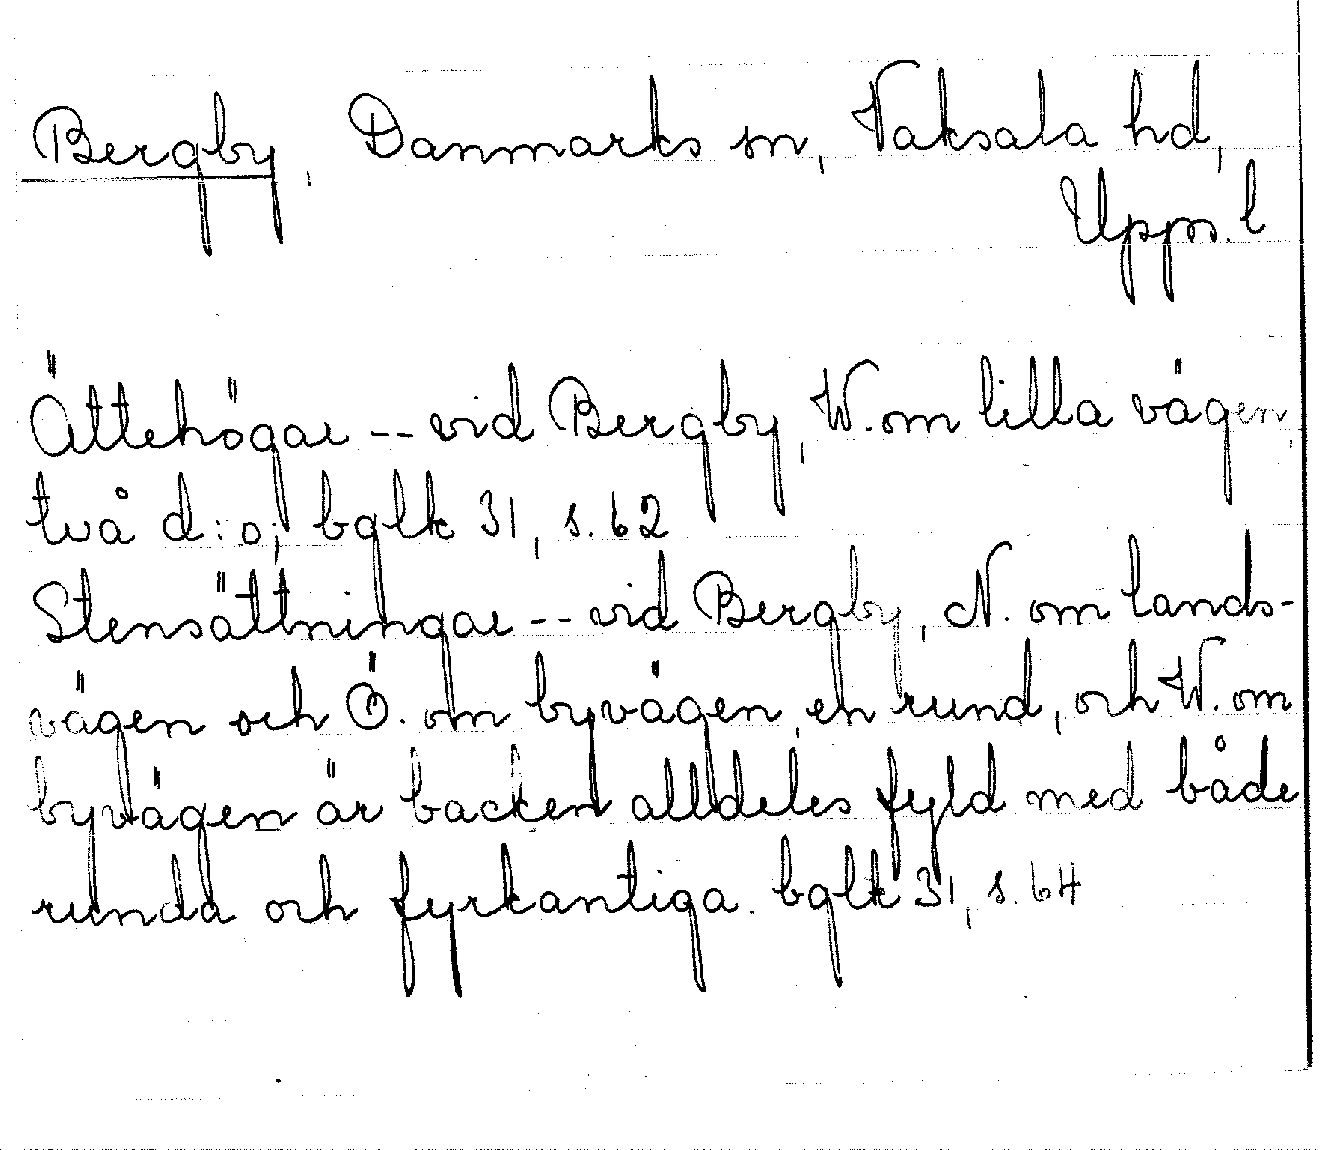 Bergby, Danmarks sn, Vaksala hd,
Upps. l
Ättehögar -- vid Bergby, W. om lilla vägen,
två d:o; bglk 31, s. 62
Stensättningar -- vid Bergby, N. om lands-
vägen och Ö. om byvägen, en rund, och W. om
byvägen är backen alldeles fyld med både
runda och fyrkantiga. bglk 31, s. 64